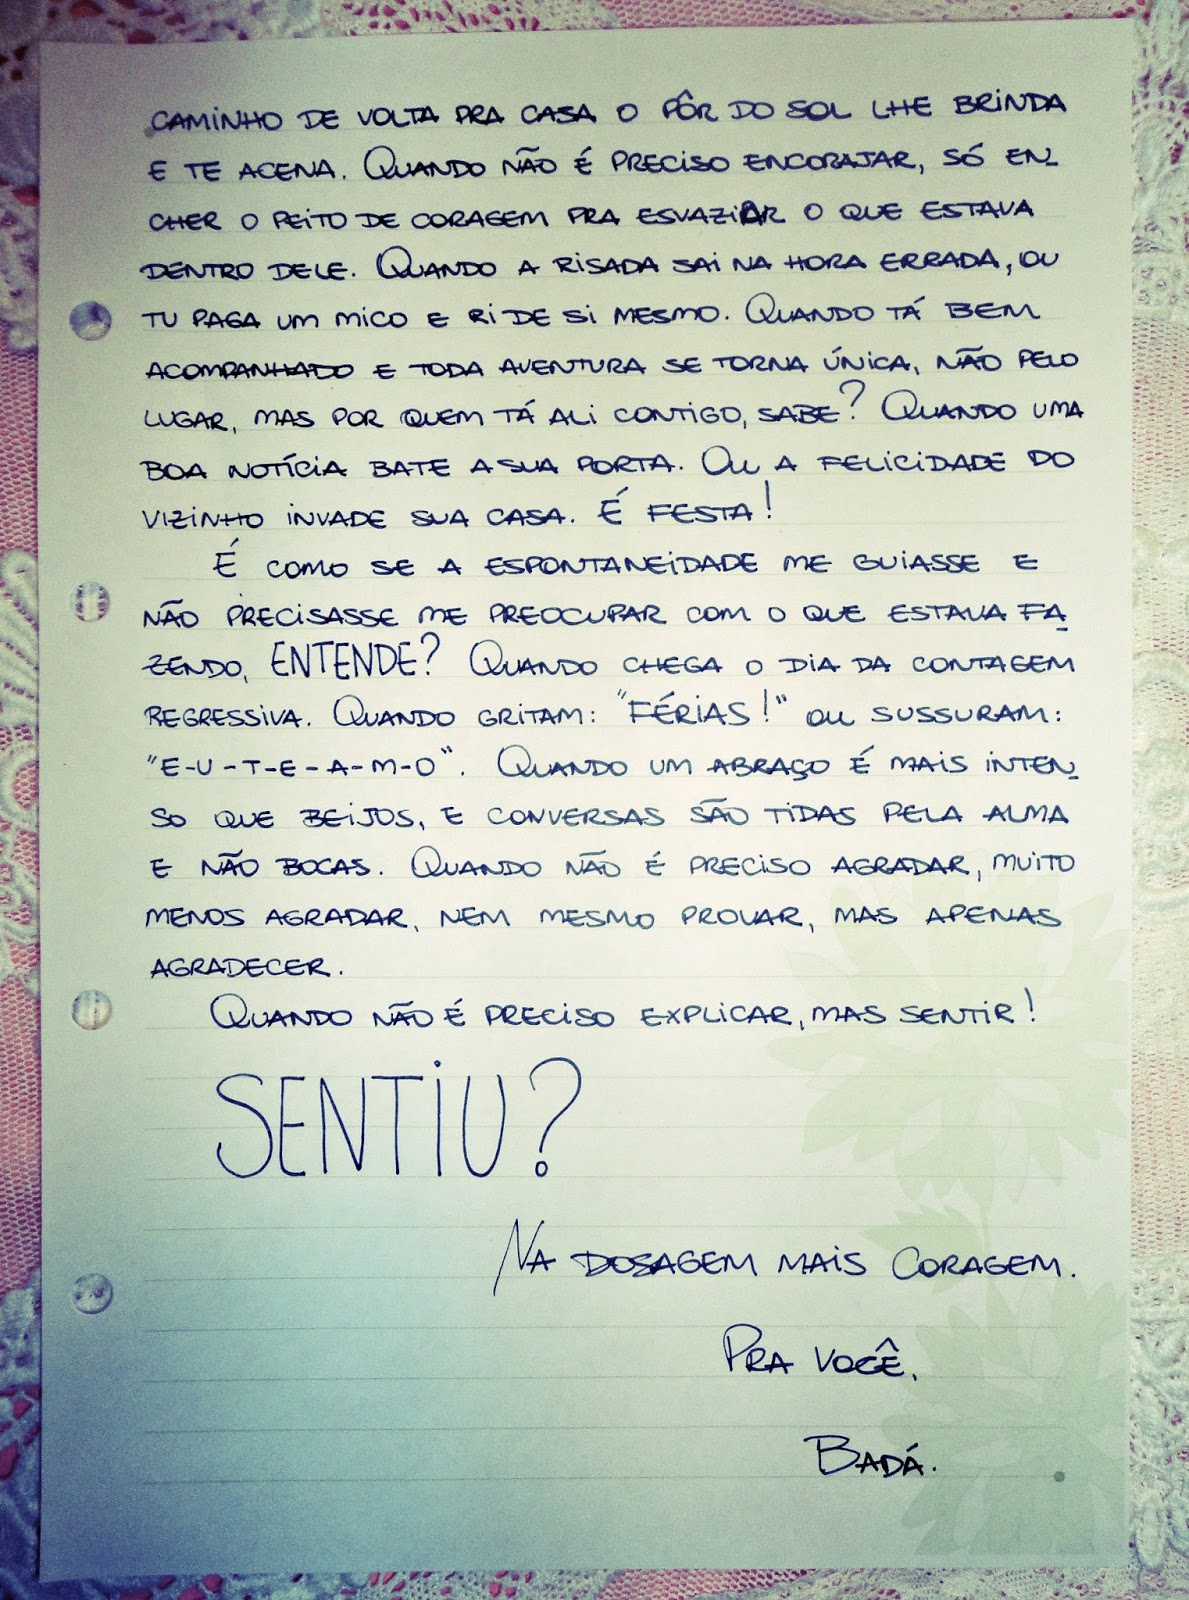 CAMINHO DE VOLTA PRA CASA O PÔR DO SOL LHE BRINDA
E TE ACENA. QUANDO NÃO É PRECISO ENCORAJAR, SÓ EN_
CHER O PEITO DE CORAGEM PRA ESVAZIAR O QUE ESTAVA
DENTRO DELE. QUANDO A RISADA SAI NA HORA ERRADA, OU
TU PAGA UM MICO E RI DE SI MESMO. QUANDO TÁ BEM
ACOMPANHADO E TODA AVENTURA SE TORNA ÚNICA, NÃO PELO
LUGAR, MAS POR QUEM TÁ ALI CONTIGO, SABE? QUANDO UMA
BOA NOTÍCIA BATE A SUA PORTA. OU A FELICIDADE DO
VIZINHO INVADE SUA CASA. É FESTA!
É COMO SE A ESPONTANEIDADE ME GUIASSE E
NÃO PRECISASSE ME PREOCUPAR COM O QUE ESTAVA FA_
ZENDO, ENTENDE? QUANDO CHEGA O DIA DA CONTAGEM
REGRESSIVA. QUANDO GRITAM: "FÉRIAS!" OU SUSSURAM:
"E-U-T-E-A-M-O". QUANDO UM ABRAÇO É MAIS INTEN_
SO QUE BEIJOS, E CONVERSAS SÃO TIDAS PELA ALMA
E NÃO BOCAS. QUANDO NÃO É PRECISO AGRADAR, MUITO
MENOS AGRADAR, NEM MESMO PROVAR, MAS APENAS
AGRADECER.
QUANDO NÃO É PRECISO EXPLICAR, MAS SENTIR!
SENTIU?
NA DOSAGEM MAIS CORAGEM.
PRA VOCÊ,
BADÁ.